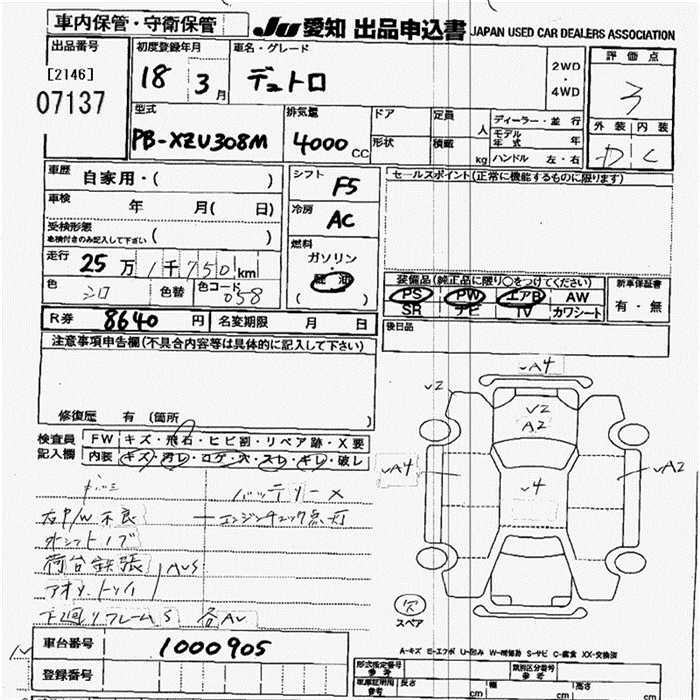 車内保管・守衛保管
JU 愛知 出品申込書 JAPAN USED CAR DEALERS ASSOCIATION
出品番号
[2146]
07137
初度登録年月
18 3月
車名・グレード
デュトロ
2WD
・
4WD
評価点
3
外装 内装
D C
型式
PB-XZU308M
排気量
4000 CC
ドア
形状
定員 人
積載 kg
ディーラー・並行
モデル年式 年
ハンドル 左・右
車歴
自家用・( )
車検 年 月( 日)
受検形態
車検付きのみ記入して下さい ( )
走行 25万1千750km
色 シロ 色替 色コード 058
シフト F5
冷房 AC
燃料
ガソリン
軽油
( )
セールスポイント(正常に機能するものに限ります)
装備品(純正品に限り○をつけてください)
PS PW エアB AW
SR ナビ TV カワシート
新車保証書
有・無
後日品
R券 8640円 名変期限 月 日
注意事項申告欄(不具合内容等は具体的に記入して下さい)
修復歴 有 (箇所 )
検査員
記入欄
FW キズ・飛石・ヒビ割・リペア跡・X要
内装 キズ・汚レ・コゲ・穴・スレ・キレ・破レ
バッテリー×
右P/W不良
エンジンチェック点灯
シフトノブ
荷台鉄張
AUS
下廻りフレームS 各AU
A4
2
2
A2
A4
4
A2
欠
スペア
A-キズ E-エクボ U-凹み W-補修跡 S-サビ C-腐食 XX-交換済
車台番号 1000905
登録番号
形式指定番号
参考
類別区分番号
参考
車庫証明用
参考
長さ
幅
高さ